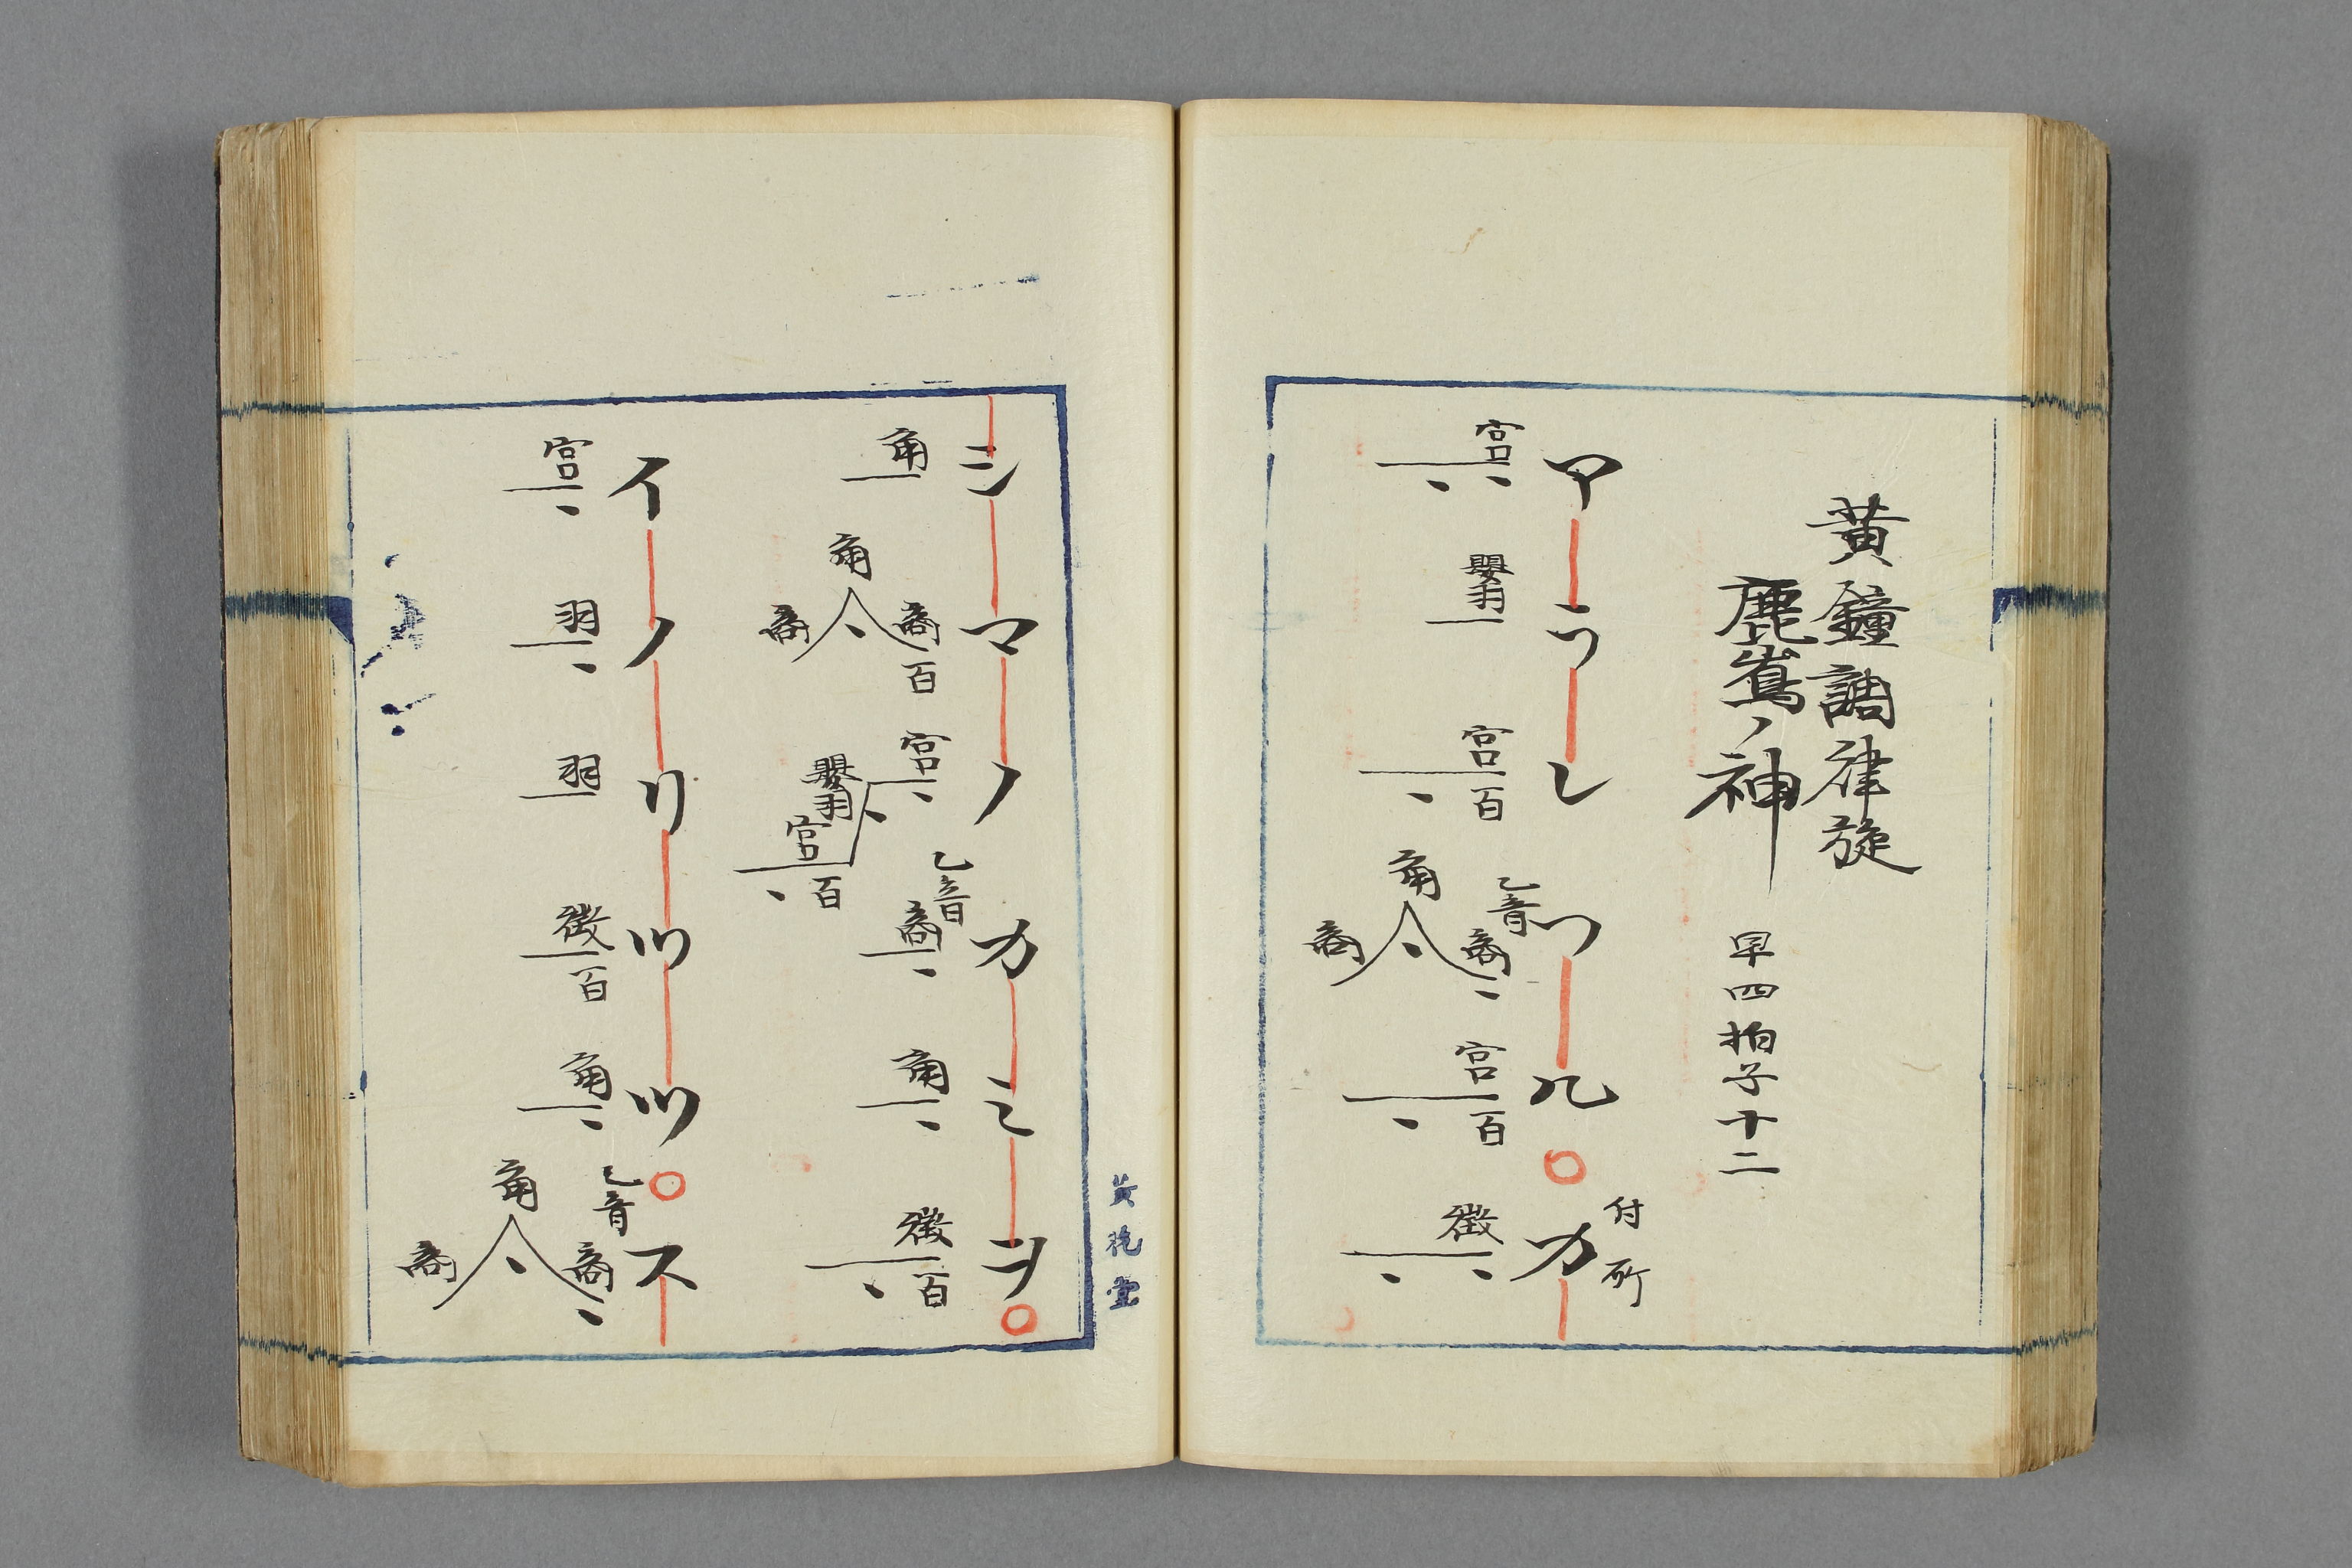 黄鐘調律旋
鹿嶌ノ神 早四拍子十二
付所
アラレフル○カ
宮 嬰羽 宮百 乙音 商 宮百 徴
角 商
シマノカミヲ○
角 商百 宮 乙音 商 角 徴百
角 商 嬰羽 宮百
イノリツツ○ス
宮 羽 羽 徴百 角 乙音 商
角 商